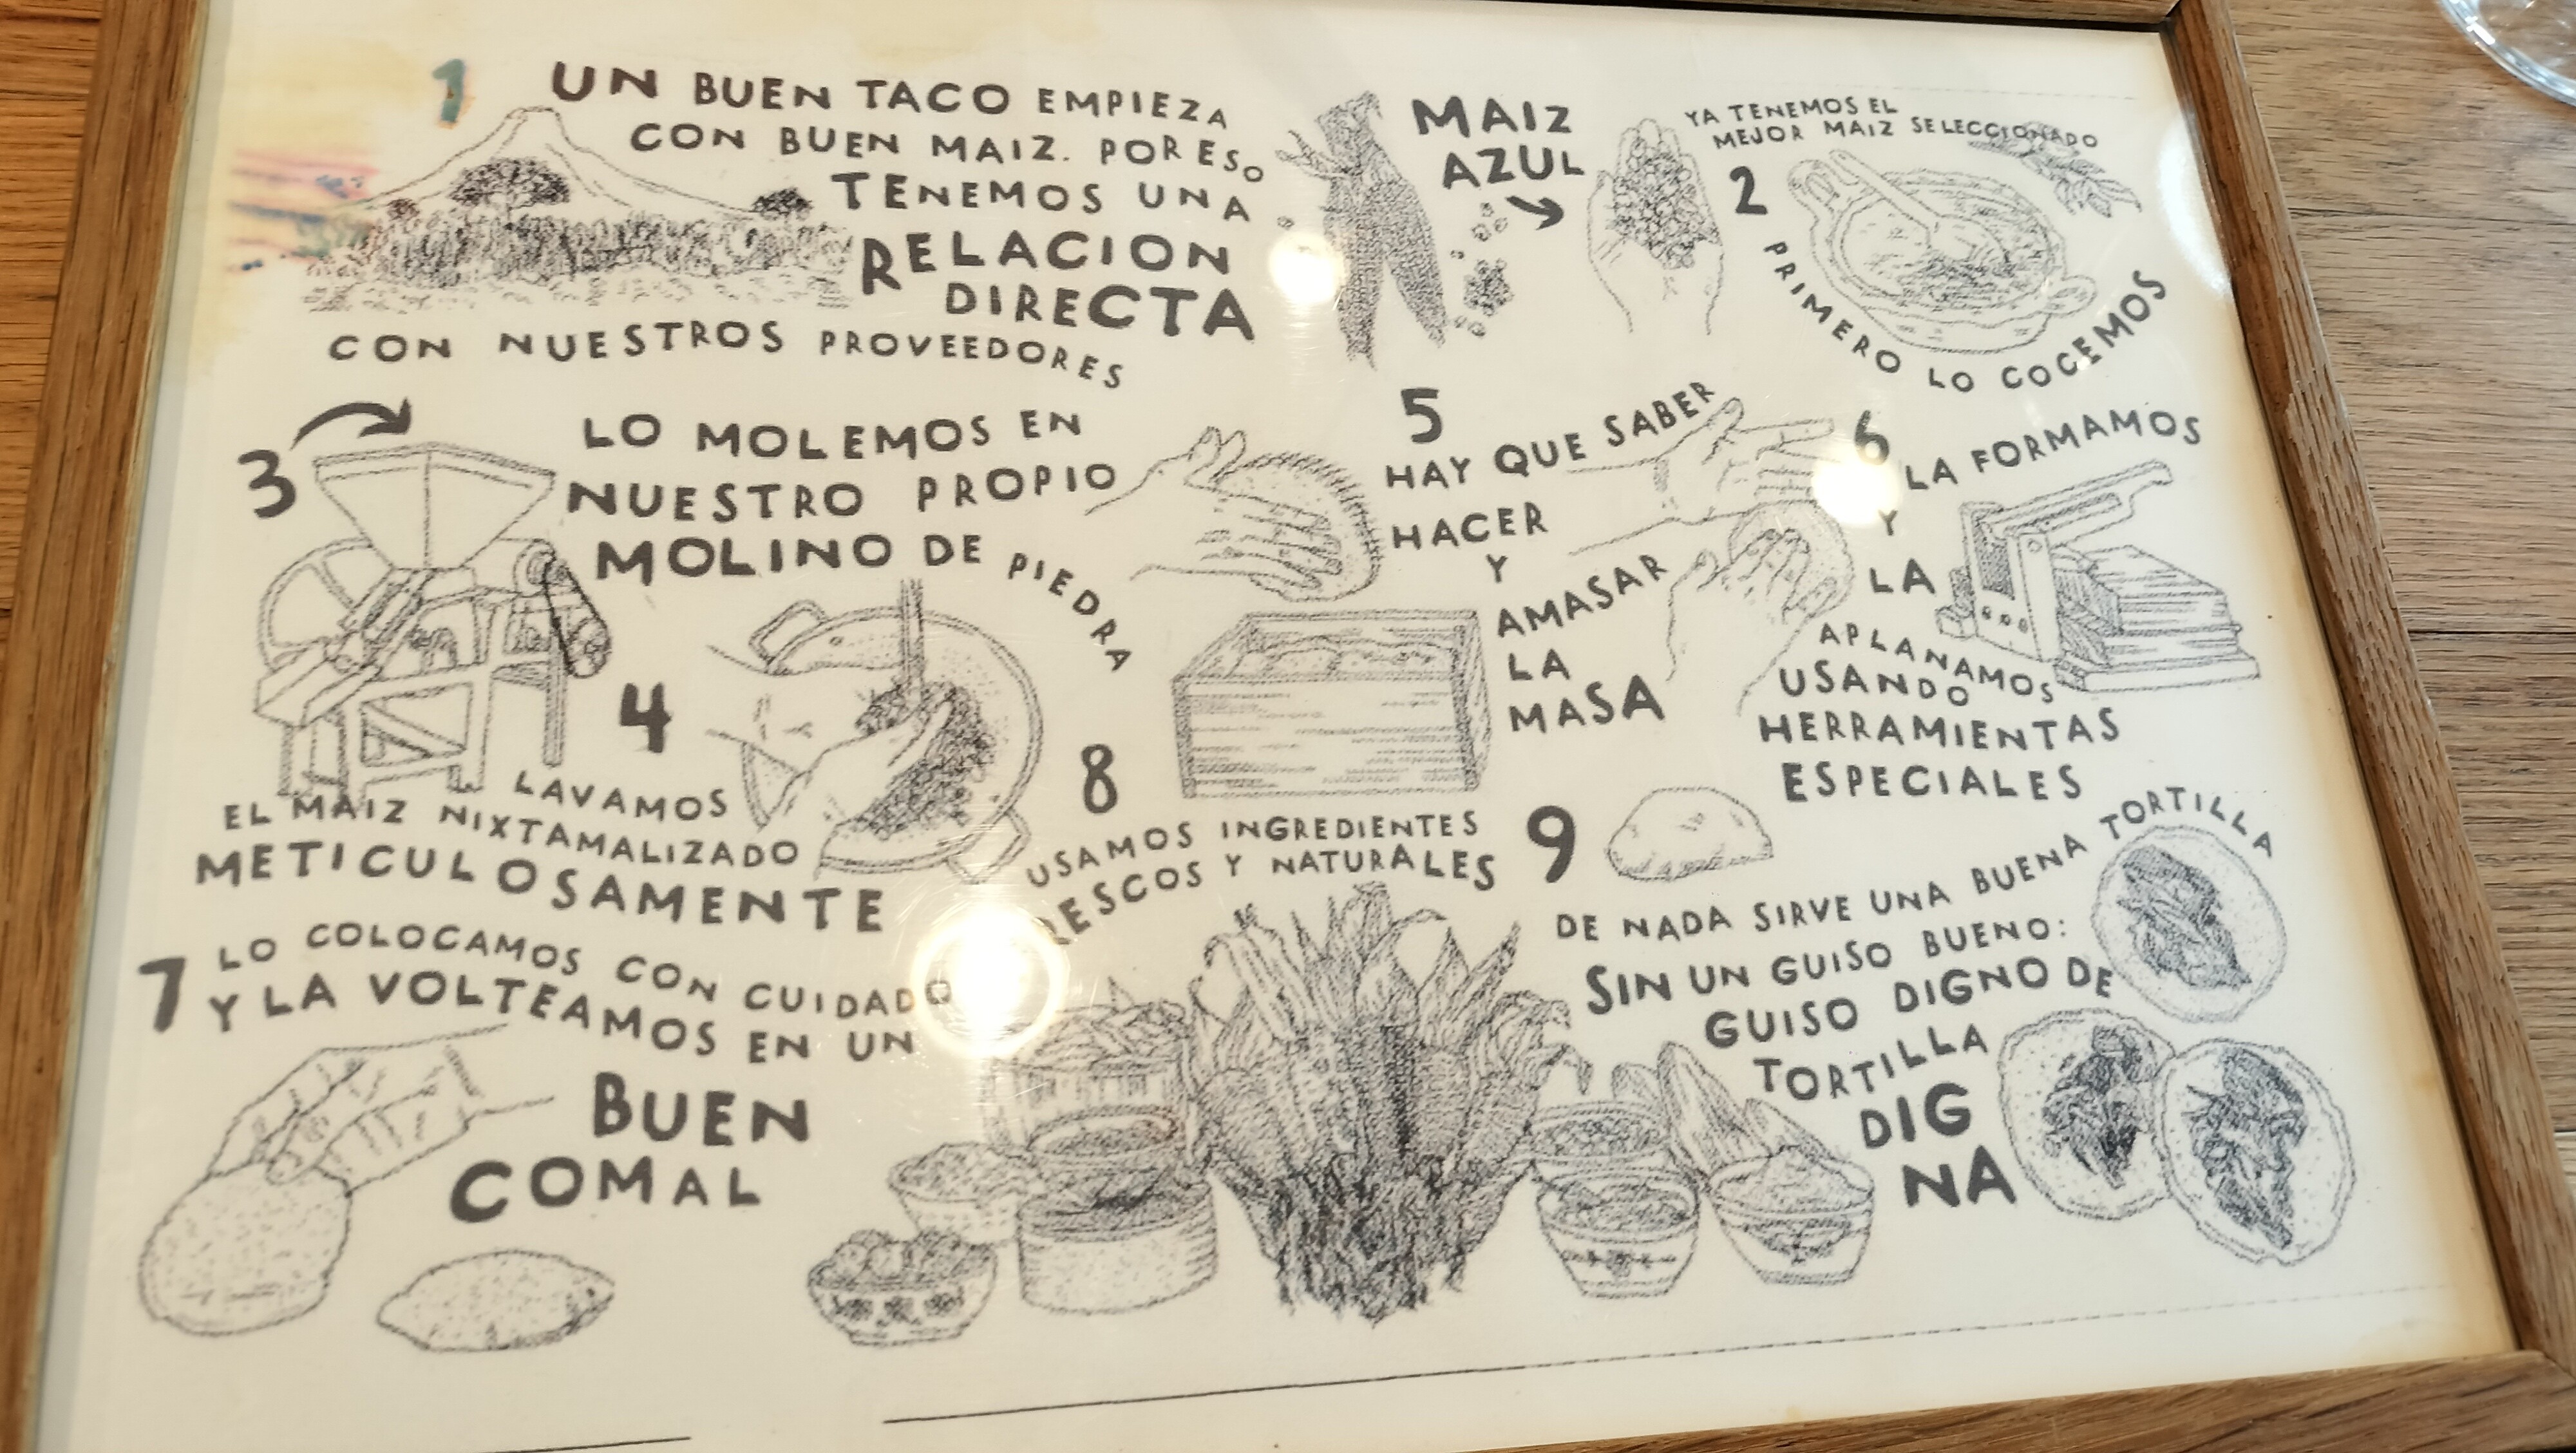 1
UN BUEN TACO EMPIEZA
CON BUEN MAIZ. POR ESO
TENEMOS UNA
RELACION
DIRECTA
CON NUESTROS PROVEEDORES
MAIZ
AZUL
YA TENEMOS EL
MEJOR MAIZ SELECCIONADO
2
PRIMERO LO COCEMOS
3
LO MOLEMOS EN
NUESTRO PROPIO
MOLINO DE PIEDRA
4
LAVAMOS
EL MAIZ NIXTAMALIZADO
METICULOSAMENTE
5
HAY QUE SABER
HACER
Y
AMASAR
LA
MASA
6
LA FORMAMOS
Y
LA
APLANAMOS
USANDO
HERRAMIENTAS
ESPECIALES
7
LO COLOCAMOS CON CUIDADO
Y LA VOLTEAMOS EN UN
BUEN
COMAL
8
USAMOS INGREDIENTES
FRESCOS Y NATURALES
9
DE NADA SIRVE UNA BUENA TORTILLA
SIN UN GUISO BUENO:
GUISO DIGNO DE
TORTILLA
DIG
NA